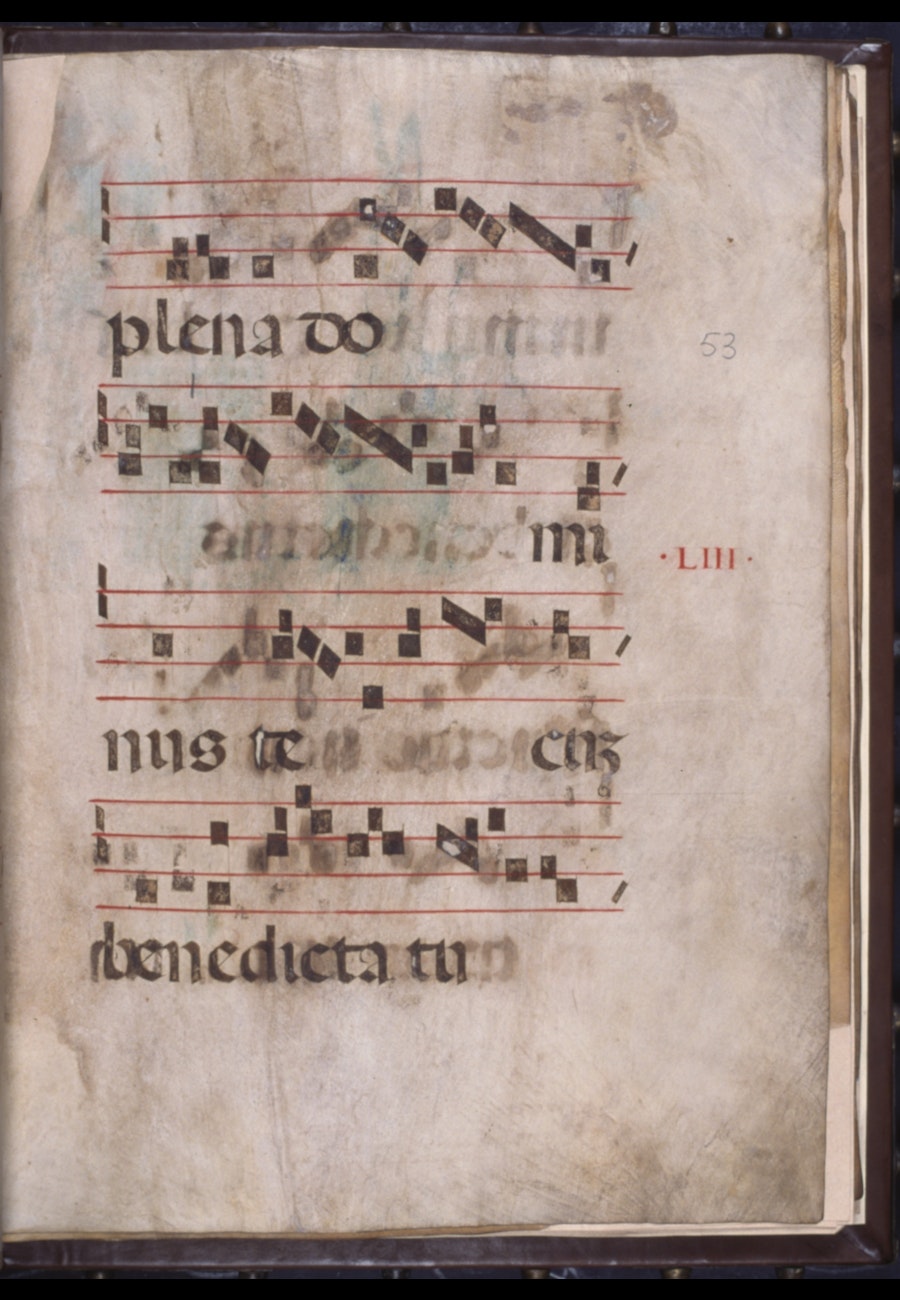 plena do
53
mi
·LIII·
nus te cuʒ
benedicta tu